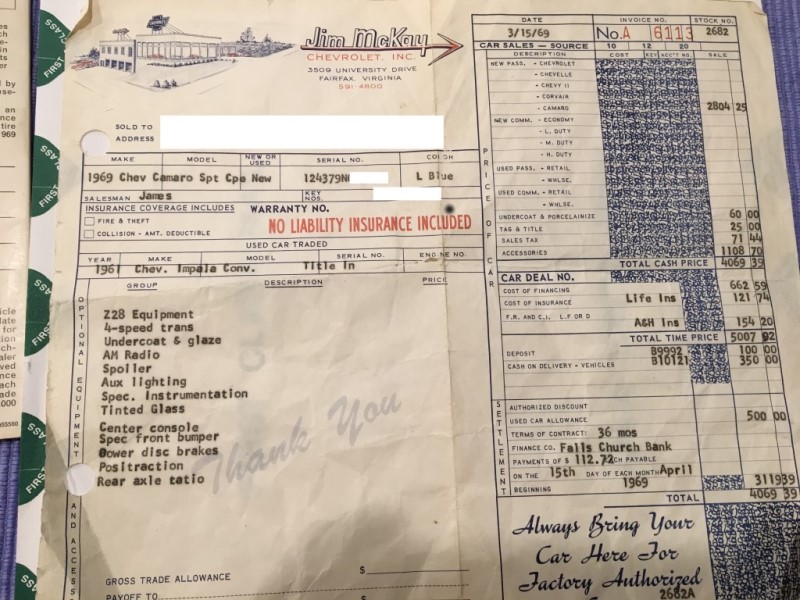 Jim McKay
CHEVROLET, INC.
3509 UNIVERSITY DRIVE
FAIRFAX, VIRGINIA
591-4800
DATE INVOICE NO. STOCK NO.
3/15/69 No. A 6113 2682
CAR SALES — SOURCE COST KEY ACC'T NO. SALE
10 12 20
NEW PASS. - CHEVROLET
- CHEVELLE
- CHEVY II
- CORVAIR
- CAMARO 2804 25
NEW COMM. - ECONOMY
- L. DUTY
- M. DUTY
- H. DUTY
USED PASS. - RETAIL
- WHLSE.
USED COMM. - RETAIL
- WHLSE.
UNDERCOAT & PORCELAINIZE 60 00
TAG & TITLE 25 00
SALES TAX 71 44
ACCESSORIES 1108 70
TOTAL CASH PRICE 4069 39
PRICE OF CAR
SOLD TO
ADDRESS
MAKE MODEL NEW OR USED SERIAL NO. COLOR
1969 Chev Camaro Spt Cpe New 124379N L Blue
SALESMAN James KEY NOS.
INSURANCE COVERAGE INCLUDES WARRANTY NO.
FIRE & THEFT
COLLISION - AMT. DEDUCTIBLE
NO LIABILITY INSURANCE INCLUDED
USED CAR TRADED
YEAR MAKE MODEL SERIAL NO. ENGINE NO.
1961 Chev. Impala Conv. Title In
GROUP DESCRIPTION PRICE
OPTIONAL EQUIPMENT AND ACCESS
Z28 Equipment
4-speed trans
Undercoat & glaze
AM Radio
Spoiler
Aux lighting
Spec. Instrumentation
Tinted Glass
Center console
Spec front bumper
Oower disc brakes
Positraction
Rear axle tatio
Thank You
GROSS TRADE ALLOWANCE $
PAYOFF TO $
CAR DEAL NO.
COST OF FINANCING 662 59
COST OF INSURANCE Life Ins 121 74
F.R. AND C.I. L.F OR D
A&H Ins 154 20
TOTAL TIME PRICE 5007 92
DEPOSIT B9992 100 00
CASH ON DELIVERY - VEHICLES B10121 350 00
SETTLEMENT
AUTHORIZED DISCOUNT
USED CAR ALLOWANCE 500 00
TERMS OF CONTRACT: 36 mos
FINANCE CO. Falls Church Bank
PAYMENTS OF $ 112.72 EACH PAYABLE
ON THE 15th DAY OF EACH MONTH April
BEGINNING 1969 311939
TOTAL 4069 39
Always Bring Your
Car Here For
Factory Authorized
2682A
FIRST
CLASS
FIRST
CLASS
FIRST
CLASS
FIRST
CLASS
FIRST
CLASS